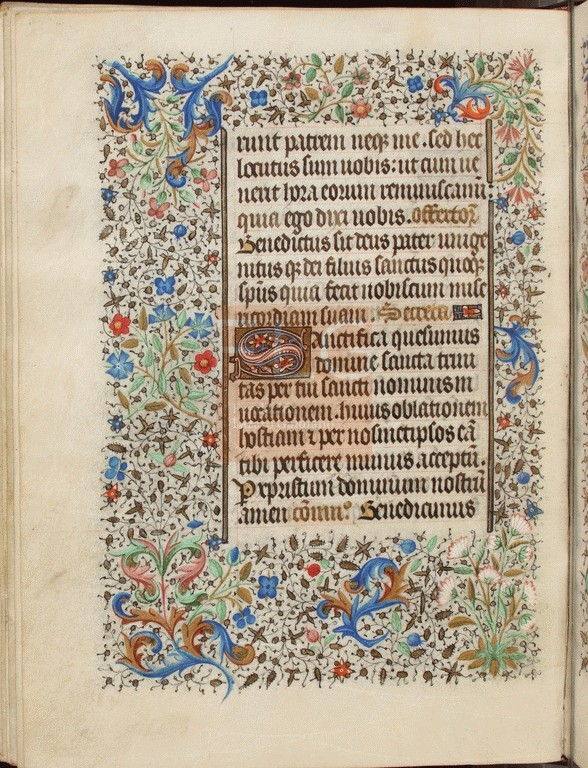 runt patrem neq me. sed hec
locutus sum uobis: ut cum ue
nerit hora eorum reminiscamī
quia ego dixi uobis. offertoꝝ
Benedictus sit deus pater unige
nitus qꝫ dei filius sanctus quoqꝫ
sp̄us quia fecit nobiscum mise
ricordiam suam. Secreta
Sanctifica quesumus
domine sancta trini
tas per tui sancti nominis in
uocationem. huius oblationem
hostiam ⁊ per nosmetipsos eā
tibi perfice munus. acceptū.
Per xp̄istum dominum nostrū
amen cōmūº. Benedicimus